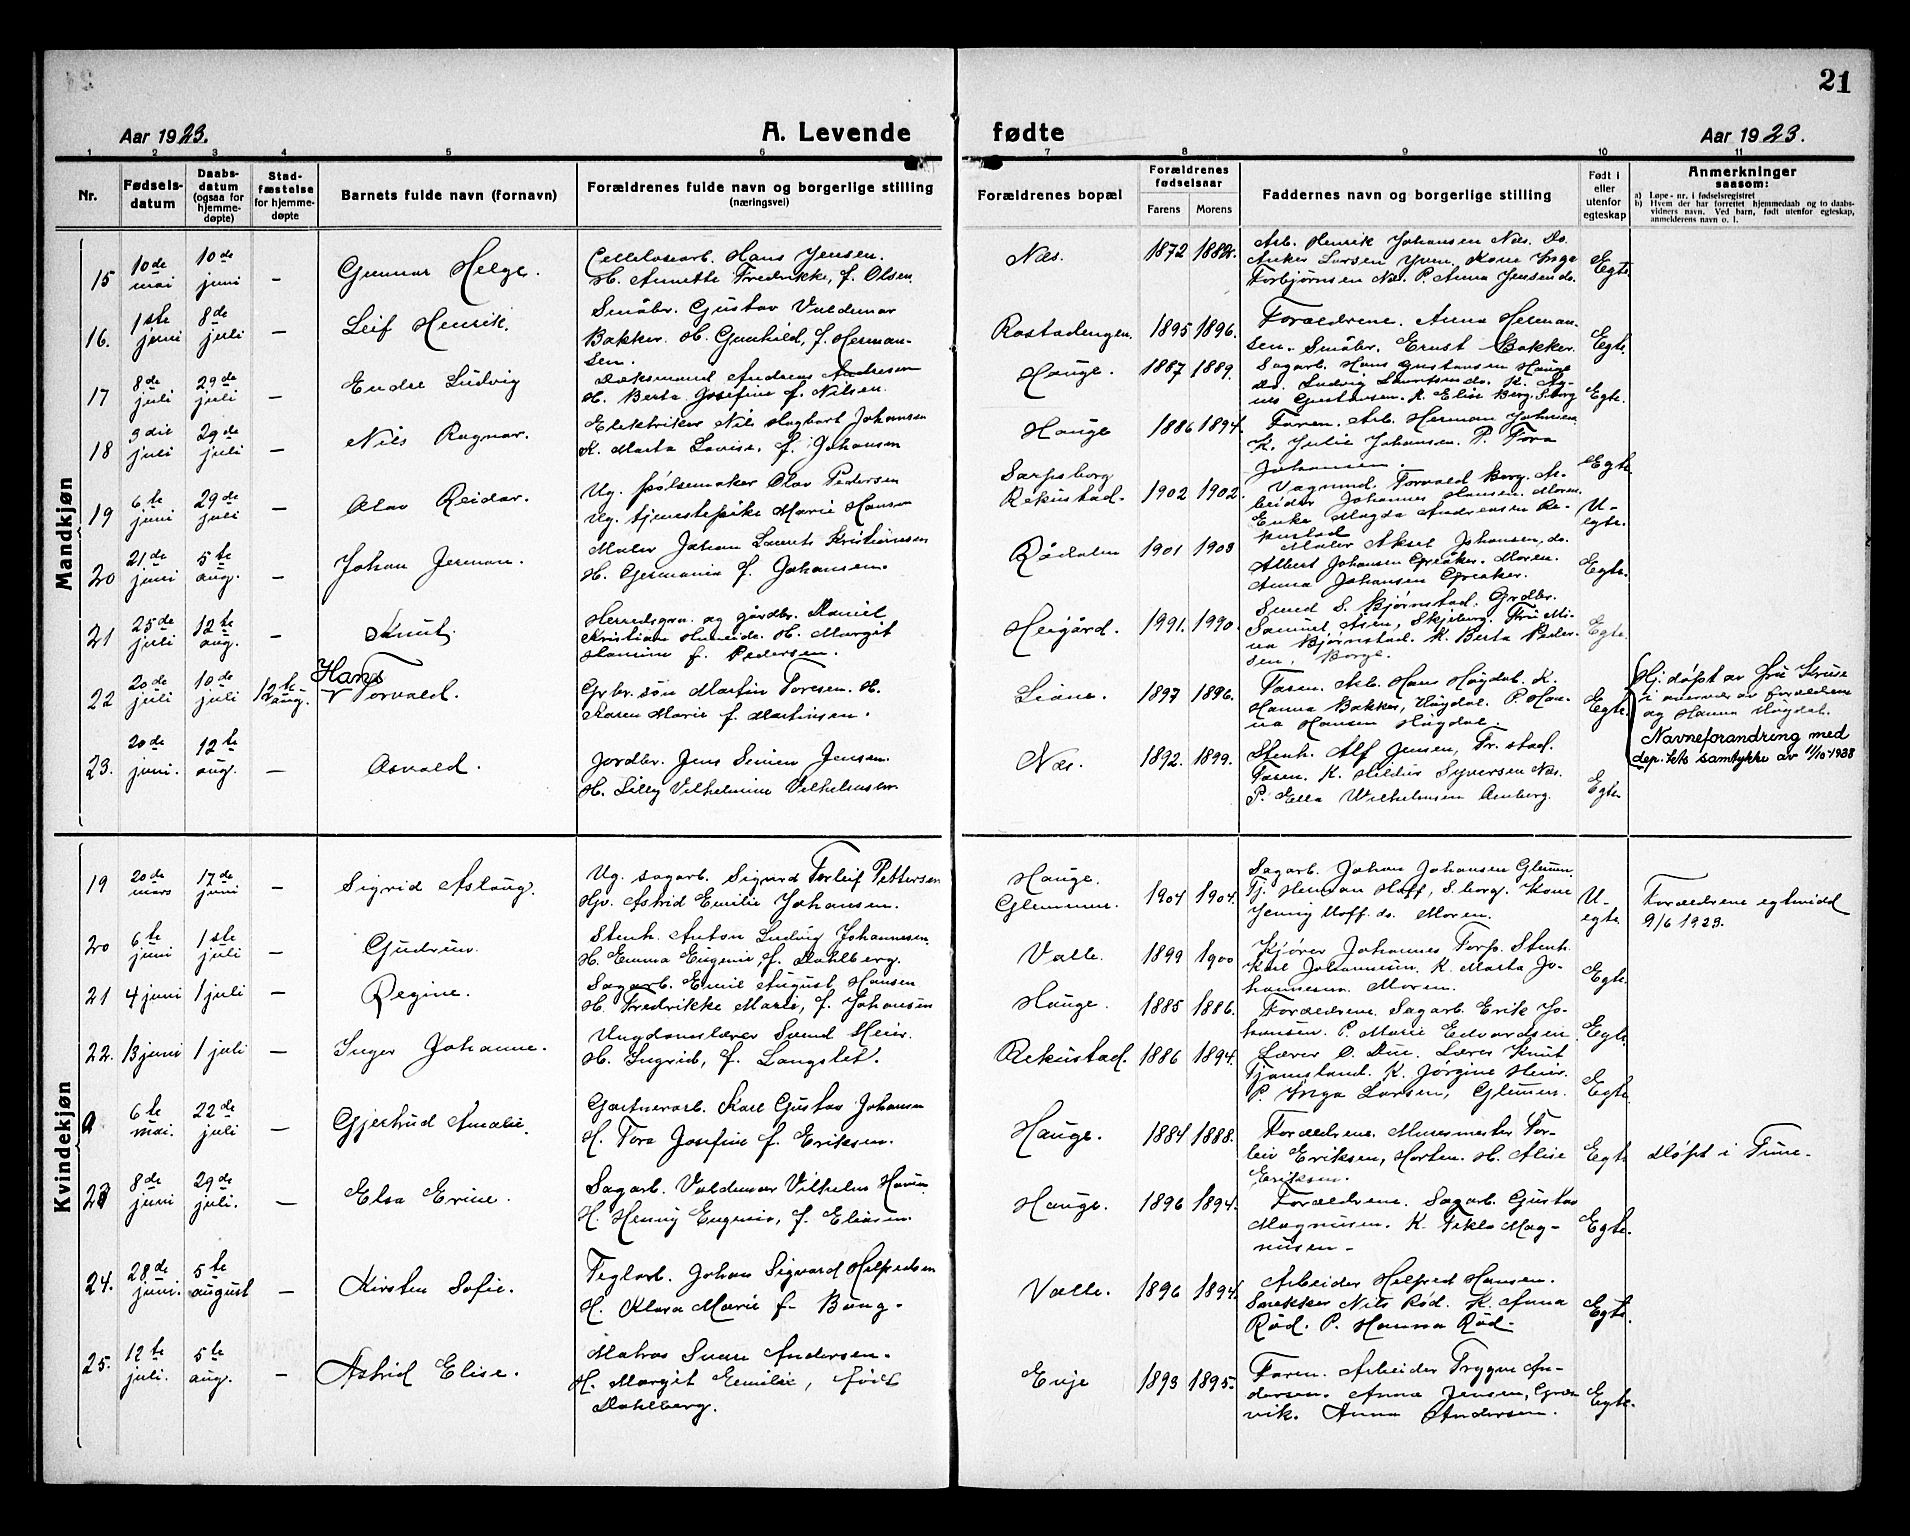 21
Aar 1923. A. Levende fødte Aar 1923.
1 2 3 4 5 6 7 8 9 10 11
Nr. Fødsels-datum Daabs-datum (ogsaa for hjemme-døpte) Stad-fæstelse for hjemme-døpte Barnets fulde navn (fornavn) Forældrenes fulde navn og borgerlige stilling (næringsvei) Forældrenes bopæl Forældrenes fødselsaar Farens Morens Faddernes navn og borgerlige stilling Født i eller utenfor egteskap Anmerkninger saasom:
a) Løpe-nr. i fødselsregistret
b) Hvem der har forrettet hjemmedaab og to daabs-vidners navn. Ved barn, født utenfor egteskap, anmelderens navn o. l.
Mandkjøn
15 10de mai 10de juni — Gunnar Helge. Cellelosearb. Hans Jensen.
H. Annette Fredrikke, f. Olsen.
Næs. 1872 1882. Arb. Henrik Johansen Næs. Do.
Anker Larsen Yven. Kone Inga
Torbjørnsen Næs. P. Anna Jensen do. Egte
16. 1ste juni 8de juli — Leif Henrik. Småbr. Gustav Valdemar
Bakker. H. Gunhild, f. Herman-
sen.
Rostadengen. 1895 1896. Forældrene. Anna Herman-
sen. Småbr. Ernst Bakker. Egte.
17 8de juli 29de juli — Endre Ludvig Andreas Andresen
H. Berta Josefine f. Nilsen.
Hauge. 1887 1889. Sagarb. Hans Gustavsen Hauge
do. Ludvig Lauritsen do. K. Ag-
nes Gustavsen. K. Elise Berg. S.borg Egte.
18 9die juli 29de juli — Nils Ragnar. Elektriker Nils Hagbart Johansen
K. Marta Lovise, f. Johansen
Hauge 1886 1894. Faren. Arb. Herman Johansen
K. Julie Johansen. P. Tora
Johansen. Egte
19 6te juni 29de juli — Olav Reidar. Ug. pølsemaker Olav Pedersen
Ug. tjenestepike Marie Hansen
Sarpsborg
Rekustad. 1902 1902. Vognmd. Torvald Borg. Ar-
beider Johannes Hansen. Moren.
Enke Magda Andreassen Re-
kustad U-egte.
20 21de juni 5te aug. — Johan Jerman. Maler Johan Laurits Kristiansen
H. Germania f. Johansen.
Rådalen 1901 1903 Maler Aksel Johansen, do.
Albert Johansen Greåker. Moren.
Anna Johansen Greåker. Egte.
21 25de juli 12te aug. — Knut. Herredsgrn. og gårdbr. Daniel
Kristian H. Margit
f. Pedersen.
Heigård. 1991. 1990. Svend S. Bjørnstad. Grdbr.
Samuel Skjeberg. Fru Mi-
na Bjørnstad. K. Berta Peder-
sen, Borge. Egte.
22 20de juli 10de juli 12te aug. Hans
Torvald. Grbr. søn Martin Toresen. H.
Karen Marie f. Martinsen.
Liane. 1897 1896. Faren. Arb. Hans Høgdal. K.
Hanna Bakker, Høgdal. P. Han-
na Hansen Høgdal. Egte. Hj. døpt av Fru Kruse
i nærvær av forældrene
og Hanna Høgdal.
Navneforandring med
dep.tets samtykke av 11/10-1938
23. 20de juni. 12te aug. — Asvald. Jordbr. Jens Simen Jensen.
H. Lilly Vilhelmine Vilhelmsen
Næs. 1892. 1899. Stenh. Alf Jensen, Fr.stad.
Faren. K. Hildur Syversen Næs.
P. Ella Wilhelmsen Amberg. Egte.
Kvindekjøn
19 20de mars 17de juni — Sigrid Aslaug. Ug. sagarb. Sigurd Torleif Pettersen
Hjv. Astrid Emilie Johansen.
Hauge.
Glemmen. 1904 1904. Sagarb. Johan Johansen Glemm.
Tj. Herman Hoff, S.borg. Kone
Jenny Hoff do. Moren. U-egte Forældrene egtviedd
9/6 1923.
20 6te juni 1ste juli — Gudrun. Stenh. Anton Ludvig Johannesen.
H. Emma Eugenie, f. Dahlberg.
Valle. 1899 1900 Kjører Johannes Torp. Stenh.
Karl Johannesen. K. Marta Jo-
hannesen. Moren. Egte.
21 4 juni 1 juli — Regine. Sagarb. Emil August Hansen
H. Fredrikke Marie, f. Johansen
Hauge. 1885 1886. Forældrene. Sagarb. Erik Jo-
hansen. P. Marie Edvardsen Egte.
22. 13 juni 1 juli — Inger Johanne. Ungdomslærer Svend Heier.
H. Ingrid, f. Langslet.
Rekustad. 1886 1894. Lærer O. Due. Lærer Knut
Tjomsland. K. Jørgine Heier.
P. Inga Larsen, Glemmen. Egte.
9 6te mai. 22de juli — Gjertrud Amalie. Gartnerarb. Karl Gustav Johansen
H. Tora Josefine f. Eriksen.
Hauge. 1884 1888. Forældrene. Murermester Tor-
leiv Eriksen, Horten. H. Alise
Eriksen. Egte Døpt i Tune.
23 8de juni 29de juli. — Elsa Erine. Sagarb. Valdemar Vilhelm
H. Henny Eugenie, f. Eliasen.
Hauge. 1896 1894. Forældrene. Sagarb. Gustav
Magnusen. K. Tekla Mag-
nusen. Egte.
24. 28de juni. 5te august — Kirsten Sofie. Teglarb. Johan Sigvard Helfredsen
H. Klara Marie f. Bung.
Valle. 1896 1894. Arbeider Helfred Hansen.
Snekker Nils Rød. K. Anna
Rød. P. Hanna Rød. Egte.
25. 12te juli. 5te aug. — Astrid Elise. Matros Svein Andersen.
H. Margit Emilie, født
Dahlberg.
Evje 1893 1895. Faren. Arbeider Trygve An-
dersen. Anna Jensen, Græs-
vik. Anna Andersen. Egte.